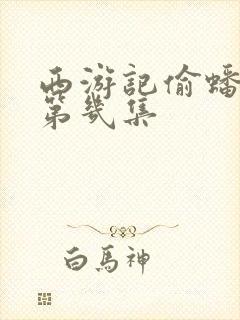 西游記偷蟠
第幾集
白馬神